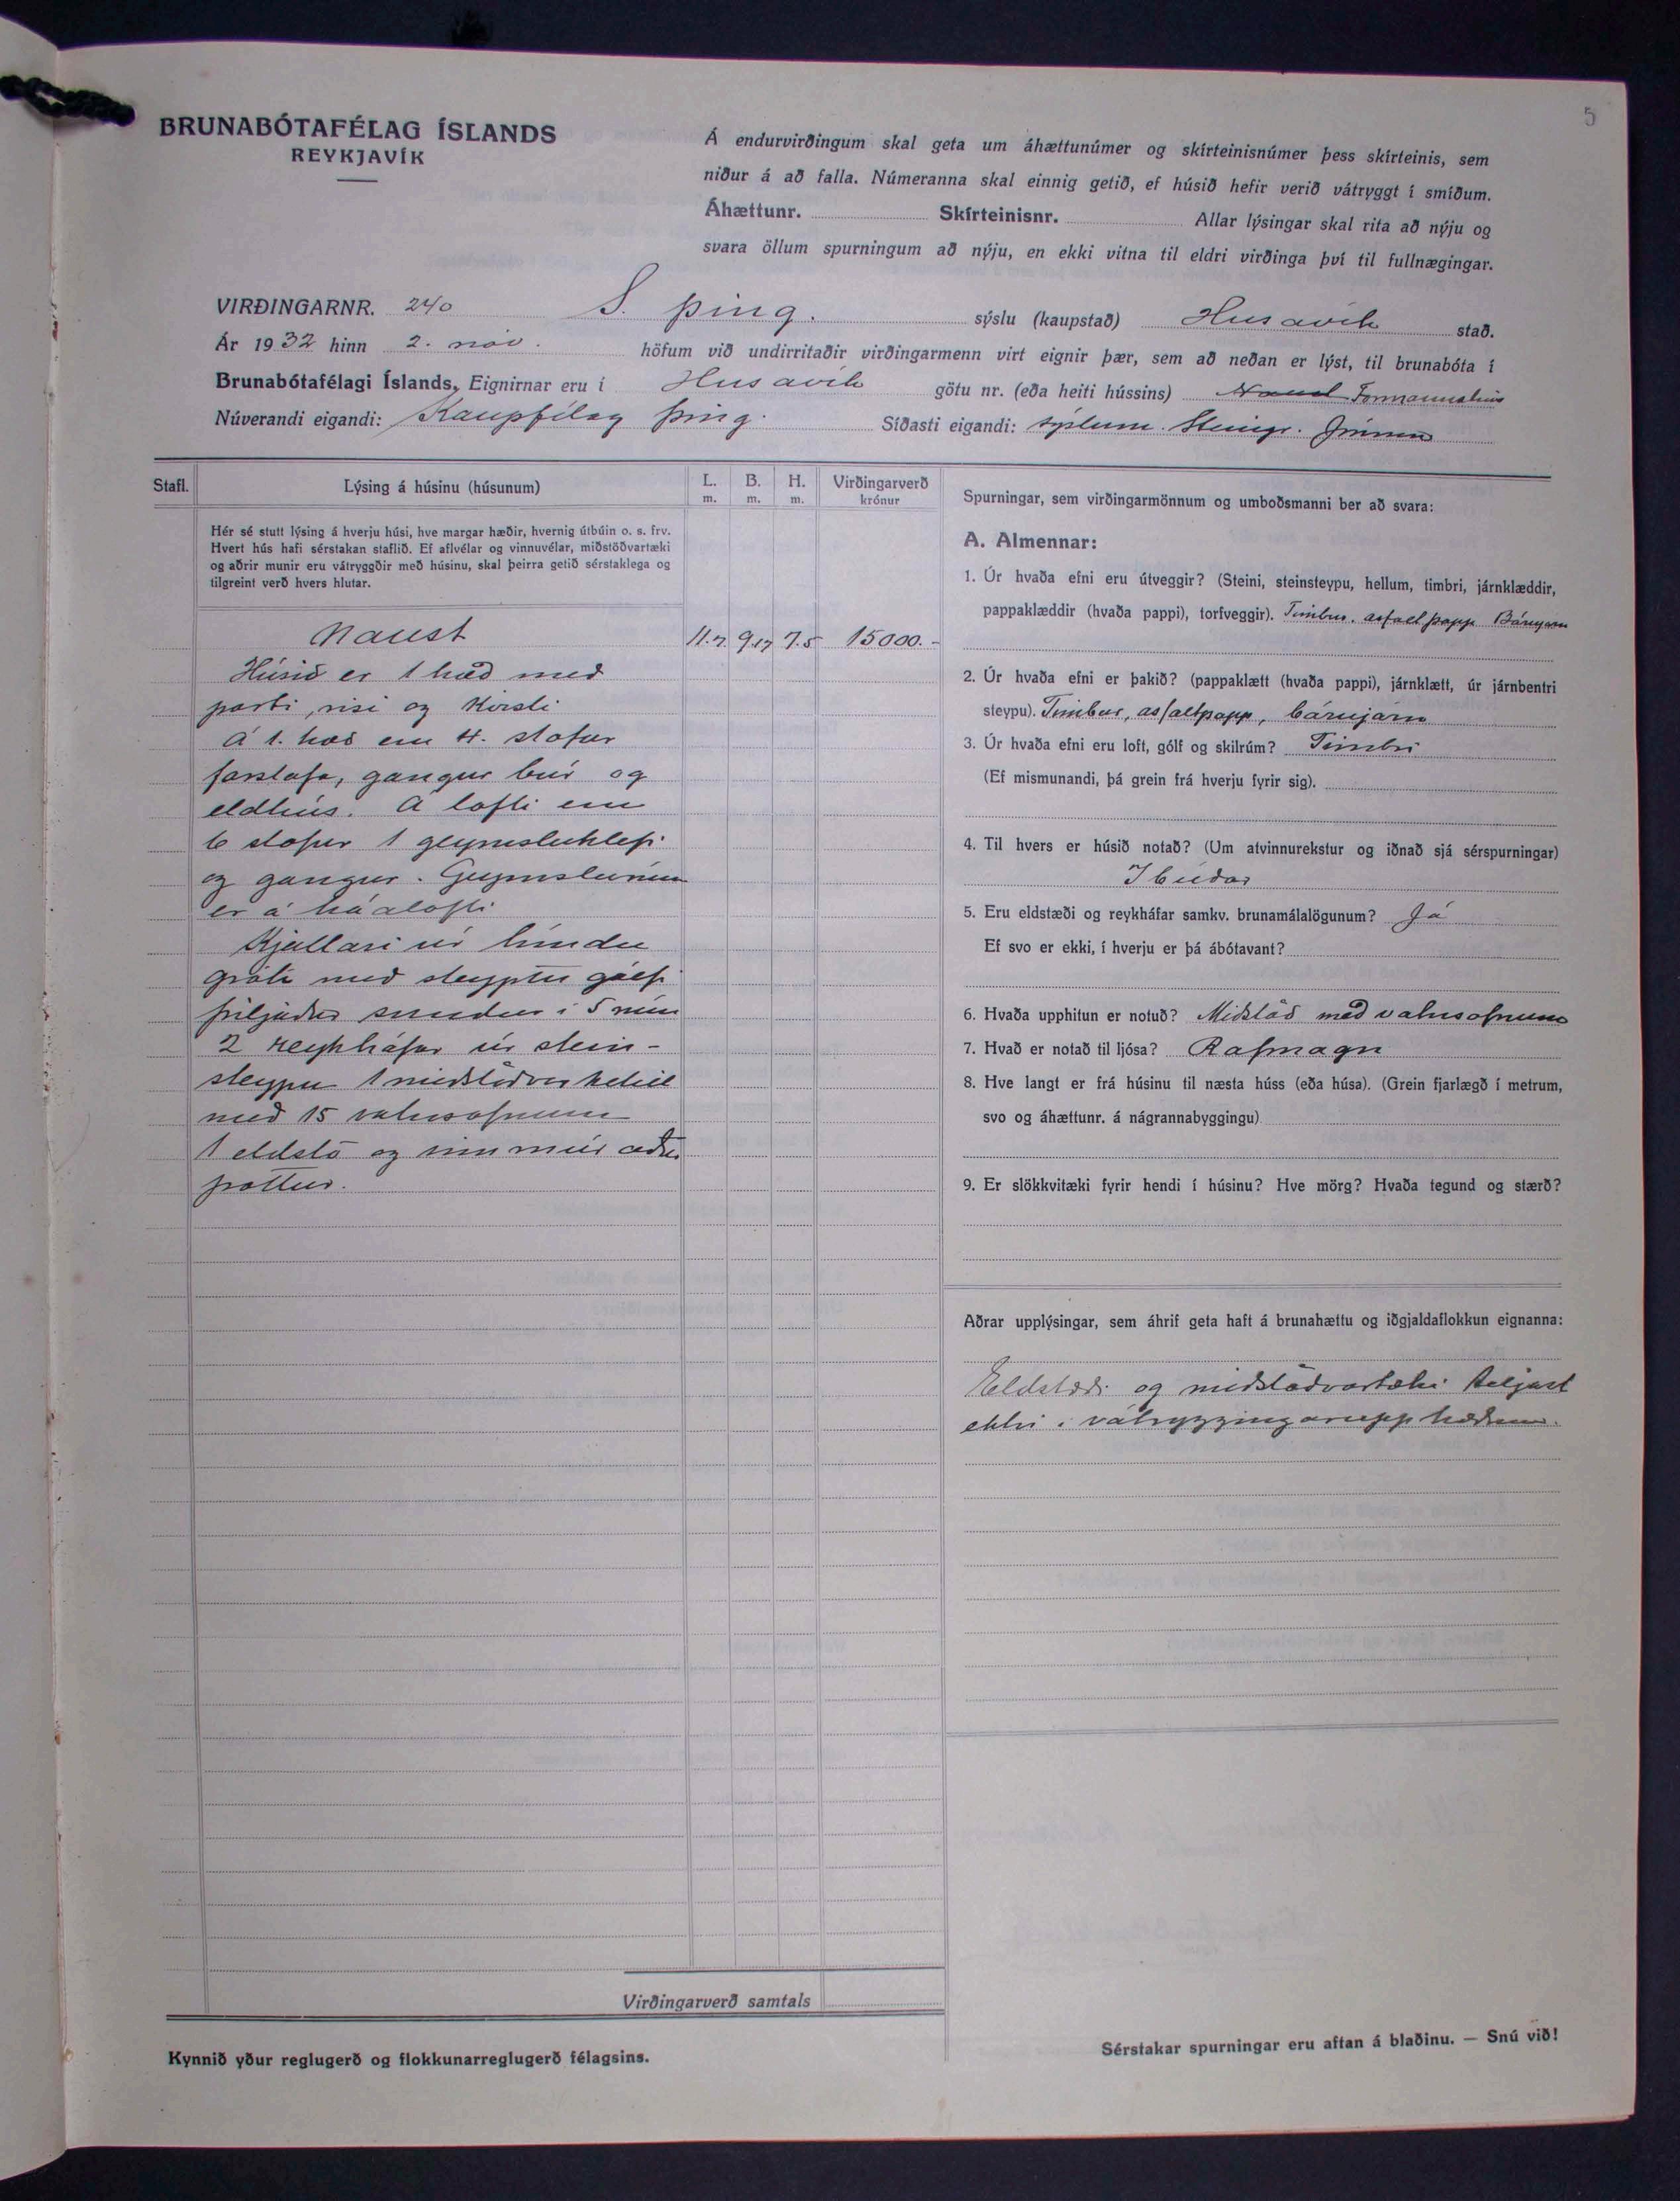 5
BRUNABÓTAFÉLAG ÍSLANDS
REYKJAVÍK
Á endurvirðingum skal geta um áhættunúmer og skírteinisnúmer þess skírteinis, sem
niður á að falla. Númeranna skal einnig getið, ef húsið hefir verið vátryggt í smíðum.
Áhættunr. Skírteinisnr. Allar lýsingar skal rita að nýju og
svara öllum spurningum að nýju, en ekki vitna til eldri virðinga því til fullnægingar.
VIRÐINGARNR. 240 S. Þing. sýslu (kaupstað) Husavík stað.
Ár 1932 hinn 2. nóv. höfum við undirritaðir virðingarmenn virt eignir þær, sem að neðan er lýst, til brunabóta í
Brunabótafélagi Íslands, Eignirnar eru í Husavík götu nr. (eða heiti hússins) Formannshús
Núverandi eigandi: Kaupfélag Þing. Síðasti eigandi: sýslum. Steingr. Jónsson
Stafl. Lýsing á húsinu (húsunum) L. m. B. m. H. m. Virðingarverð krónur
Hér sé stutt lýsing á hverju húsi, hve margar hæðir, hvernig útbúin o. s. frv.
Hvert hús hafi sérstakan staflið. Ef aflvélar og vinnuvélar, miðstöðvartæki
og aðrir munir eru vátryggðir með húsinu, skal þeirra getið sérstaklega og
tilgreint verð hvers hlutar.
Naust 11.7. 9.17 7.5 15000.-
Húsið er 1 hæð með
porti, risi og Kvisti
á 1. hæð eru 4. stofur
forstofa, gangur búr og
eldhús. Á lofti eru
6 stofur 1 geymsluklefi
og gangur. Geymslurúm
er á háalofti
Kjallari úr límdu
grjóti með steyptu gólfi
þiljaður sundur í 5 rúm
2 reykháfar úr stein-
steypu 1 miðstöðvarketill
með 15 vatnsofnum
1 eldstó og innmúraður
pottur.
Virðingarverð samtals
Kynnið yður reglugerð og flokkunarreglugerð félagsins.
Spurningar, sem virðingarmönnum og umboðsmanni ber að svara:
A. Almennar:
1. Úr hvaða efni eru útveggir? (Steini, steinsteypu, hellum, timbri, járnklæddir,
pappaklæddir (hvaða pappi), torfveggir). Timbur. asfaelpapp Bárujárn
2. Úr hvaða efni er þakið? (pappaklætt (hvaða pappi), járnklætt, úr járnbentri
steypu). Timbur, asfaeltpapp, bárujárn
3. Úr hvaða efni eru loft, gólf og skilrúm? Timbri
(Ef mismunandi, þá grein frá hverju fyrir sig).
4. Til hvers er húsið notað? (Um atvinnurekstur og iðnað sjá sérspurningar)
Ibúðar
5. Eru eldstæði og reykháfar samkv. brunamálalögunum? Já
Ef svo er ekki, í hverju er þá ábótavant?
6. Hvaða upphitun er notuð? Miðstöð með vatnsofnum
7. Hvað er notað til ljósa? Rafmagn
8. Hve langt er frá húsinu til næsta húss (eða húsa). (Grein fjarlægð í metrum,
svo og áhættunr. á nágrannabyggingu)
9. Er slökkvitæki fyrir hendi í húsinu? Hve mörg? Hvaða tegund og stærð?
Aðrar upplýsingar, sem áhrif geta haft á brunahættu og iðgjaldaflokkun eignanna:
Eldstæði og miðstöðvartæki teljast
ekki í vátryggingarupphæðinni.
Sérstakar spurningar eru aftan á blaðinu. — Snú við!